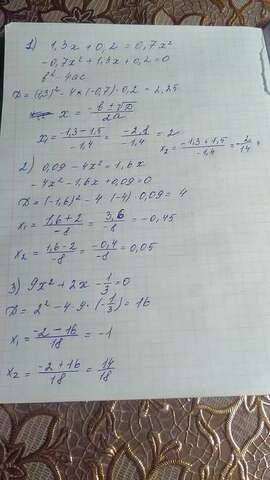 1) 1,3x + 0,2 = 0,7x²
-0,7x² + 1,3x + 0,2 = 0
b² - 4ac
D = (1,3)² - 4 × (-0,7) · 0,2 = 2,25
x = (-b ± √D)/2a
x₁ = (-1,3 - 1,5)/-1,4 = /-1,4 = 2
x₂ = (-1,3 + 1,5)/-1,4 = -2/14
2) 0,09 - 4x² = 1,6x
-4x² - 1,6x + 0,09 = 0
D = (-1,6)² - 4 · (-4) · 0,09 = 4
x₁ = (1,6 + 2)/-8 = 3,6/-8 = -0,45
x₂ = (1,6 - 2)/-8 = -0,4/-8 = 0,05
3) 9x² + 2x - 1/3 = 0
D = 2² - 4 · 9 · (-1/3) = 16
x₁ = (-2 - 16)/18 = -1
x₂ = (-2 + 16)/18 = 14/18